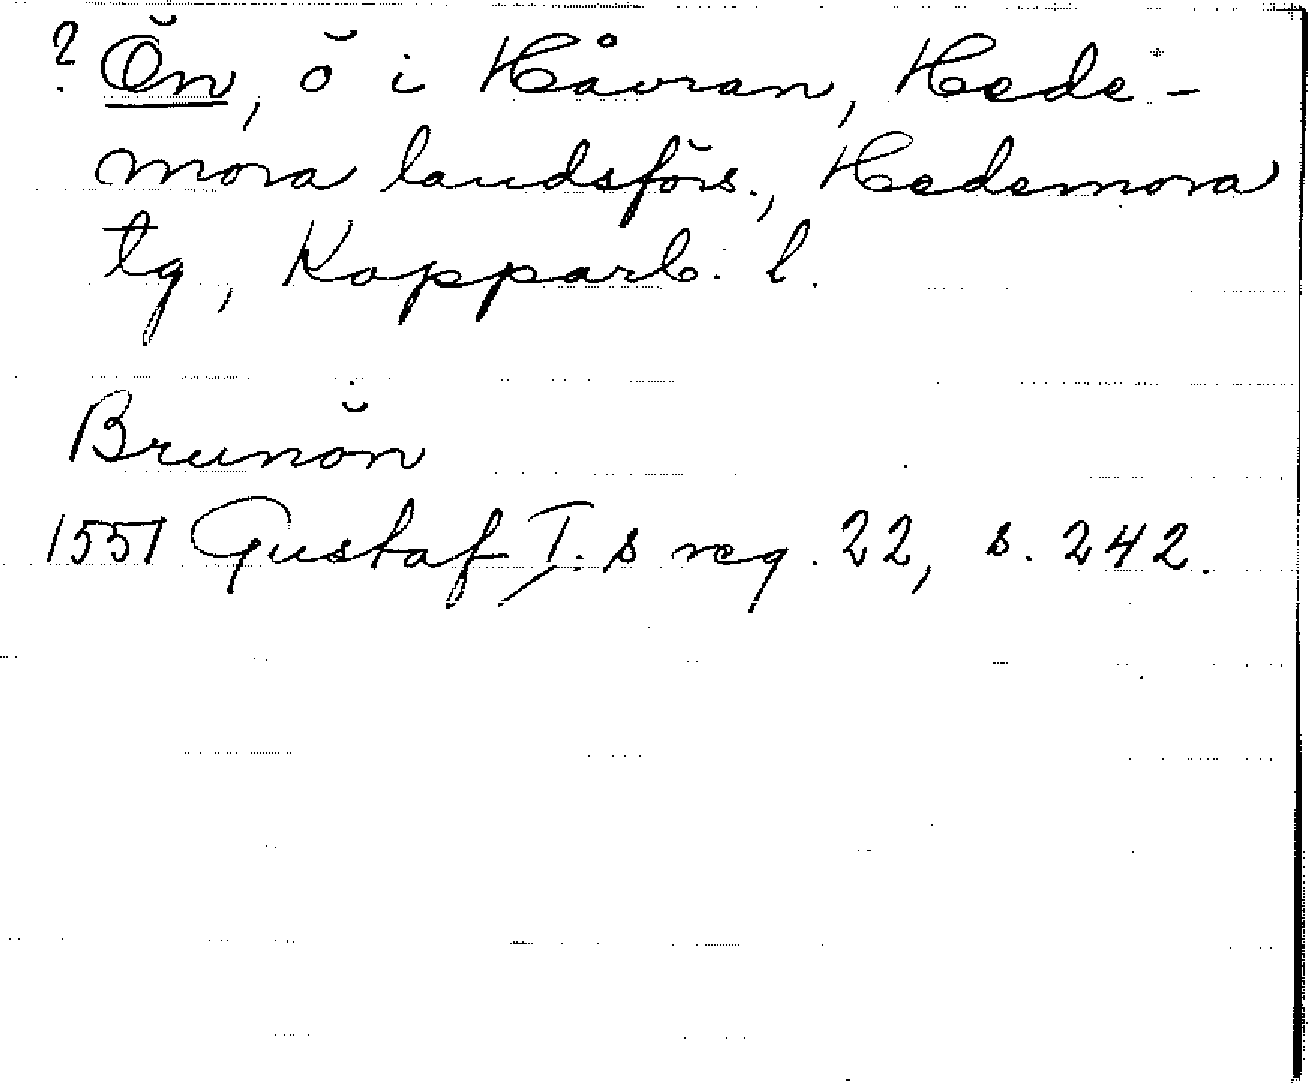 ? Ön, ö i Håvran, Hede-
mora landsförs., Hedemora
tg, Kopparb. l.
Brunön
1551 Gustaf I:s reg. 22, s. 242.